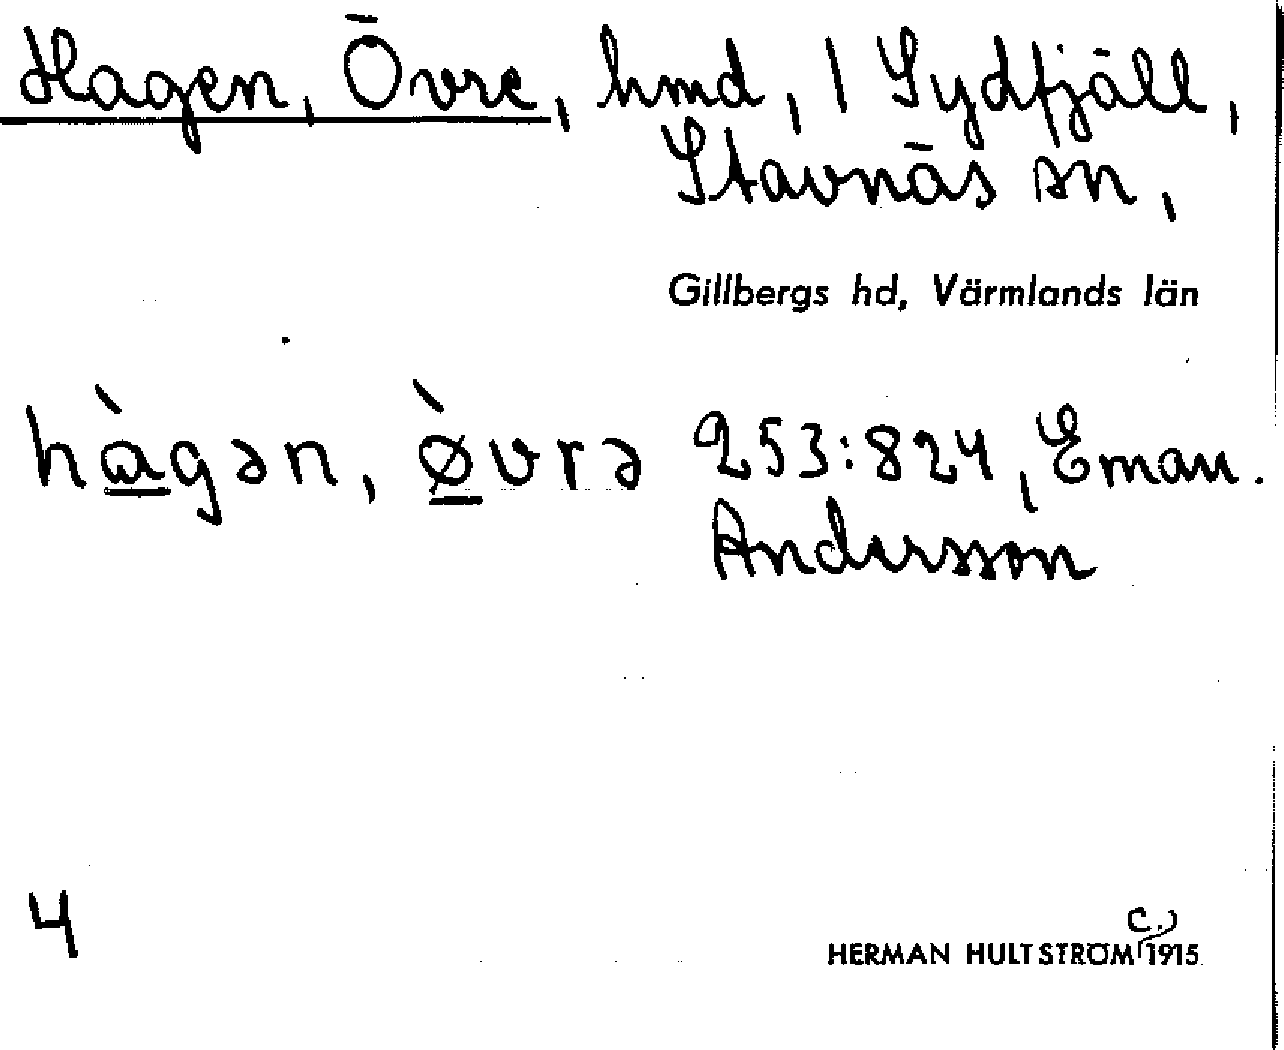 Hagen, Övre, hmd, 1 Sydfjäll,
Stavnäs sn,
Gillbergs hd, Värmlands län
hàgən, ø̀vrə 253:824, Eman.
Andersson
4
HERMAN HULTSTRÖM c.) 1915